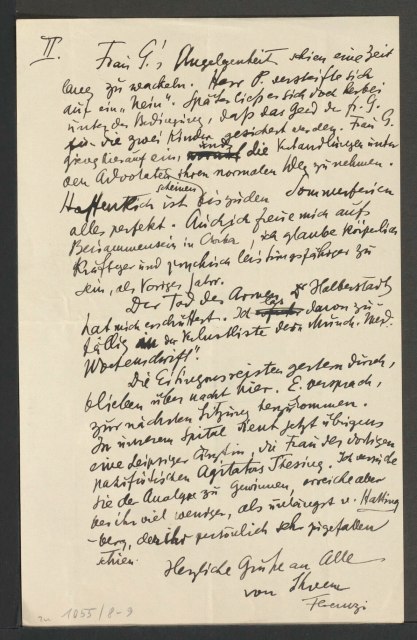 II.
Frau G.'s Angelegenheit schien eine Zeit
lang zu wackeln. Herr P. versteifte sich
auf ein „Nein". Später liess er sich doch herbei
unter der Bedingung, dass das Geld der Fr. G.
für die zwei Kinder gesichert werden. Frau G.
ging hierauf ein, und die Verhandlungen unter
den Advokaten scheinen ihren normalen Weg zu nehmen.
Hoffentlich ist bis zu den Sommerferien
alles perfekt. Auch ich freue mich aufs
Beisammensein in Csorba; ich glaube körperlich
kräftiger und psychisch leistungsfähiger zu
sein, als voriges Jahr.
Der Tod des Armen Halberstadt
hat mich erschüttert. Ich las davon zu-
fällig in der Verlustliste der Münch. Med.
Wochenschrift!
Die Eitingons reisten gestern durch,
blieben über Nacht hier. E. versprach,
zur nächsten Sitzung herzukommen.
In unserem Spital dient jetzt übrigens
eine Leipziger Ärztin, die Frau des dortigen
pazifistischen Agitators Thesing. Ich versuche
sie der Analyse zu gewinnen, erreiche aber
bei ihr viel weniger, als unlängst v. Hatting
-berg, der ihr persönlich sehr gefallen
schien.
Herzliche Grüsse an Alle
von Ihrem
Ferenczi
1055/8-9